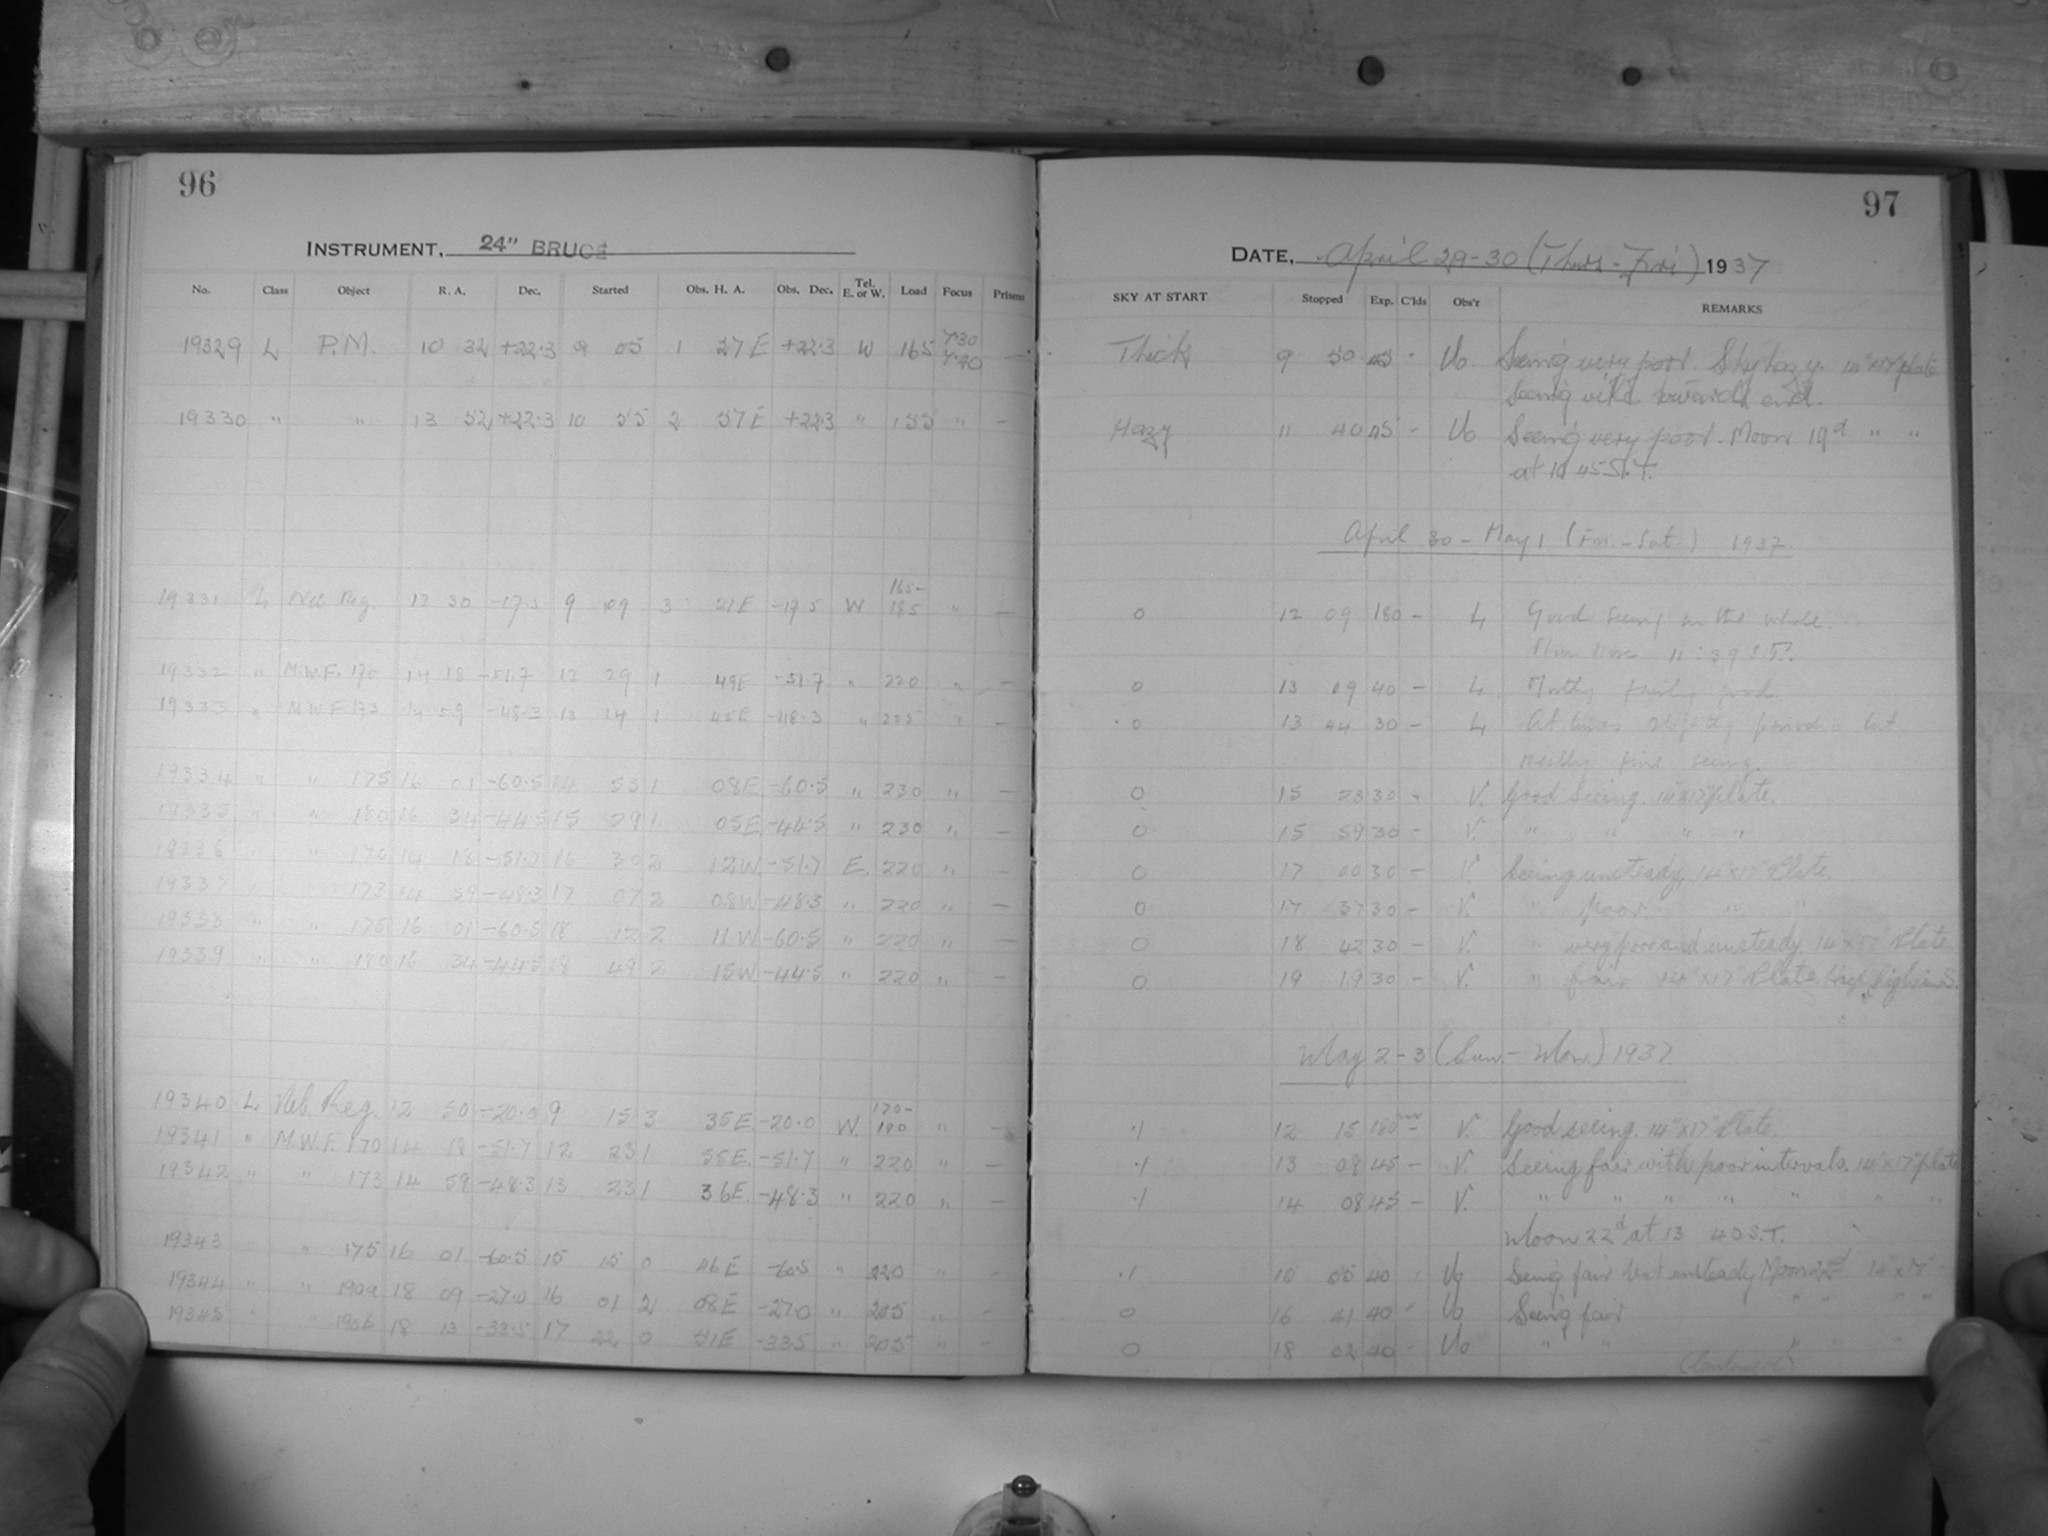 96
INSTRUMENT, 24" BRUCE
No. Class Object R. A. Dec. Started Obs. H. A. Obs. Dec. Tel. E. or W. Load Focus Prisms
19329 L P.M. 10 32 +22.3 9 05 1 27 E +22.3 W 165 7.30 —
19330 " " 13 52 +22.3 10 55 2 57 E +22.3 " 155 " —
19331 L Neb. Reg. 12 30 -17.5 9 09 3 21 E -17.5 W 165- 185 " —
19332 " M.W.F. 170 14 18 -51.7 12 29 1 49 E -51.7 " 220 " —
19333 " M.W.F. 173 14 59 -48.3 13 14 1 45 E -48.3 " 225 " —
19334 " " 175 16 01 -60.5 14 53 1 08 E -60.5 " 230 " —
19335 " " 180 16 34 -44.5 15 29 1 05 E -44.5 " 230 " —
19336 " " 170 14 18 -51.7 16 30 2 12 W. -51.7 E. 220 " —
19337 " " 173 14 59 -48.3 17 07 2 08 W -48.3 " 220 " —
19338 " " 175 16 01 -60.5 18 12 2 11 W -60.5 " 220 " —
19339 " " 180 16 34 -44.5 18 49 2 15 W -44.5 " 220 " —
19340 L Neb. Reg. 12 50 -20.0 9 15 3 35 E. -20.0 W. 170- 180 " —
19341 " M.W.F. 170 14 18 -51.7 12 23 1 55 E. -51.7 " 220 " —
19342 " " 173 14 59 -48.3 13 23 1 36 E. -48.3 " 220 " —
19343 " 175 16 01 -60.5 15 15 0 46 E -60.5 " 220 " —
19344 " " 190a 18 09 -27.0 16 01 2 08 E -27.0 " 205 " —
19345 " " 18 13 -33.5 17 22 0 51 E -33.5 " 205 " —
97
DATE, April 29-30 (Thurs-Fri) 1937
SKY AT START Stopped Exp. C'lds Obs'r REMARKS
Thick 9 50 45 - Uo. Seeing very poor. Sky hazy. 14"x17" plate
Seeing towards end.
Hazy 11 40 45 - Uo Seeing very poor. Moon 19d " "
at 10 45 S.T.
April 30 - May 1 (Fri. - Sat.) 1937.
0 12 09 180 — L Good seeing on the whole.
Moon rose 11:39 S.T.
0 13 09 40 — L Mostly fairly good
0 13 44 30 — L At times slightly but
mostly fine seeing.
0 15 23 30 - V. Good Seeing. 14"x17" plate.
0 15 59 30 - V. " " " "
0 17 00 30 - V. Seeing unsteady. 14"x17" Plate.
0 17 37 30 - V. " poor. " "
0 18 42 30 - V. " very poor and unsteady. 14"x17" Plate.
0 19 19 30 - V. " fair. 14"x17" Plate.
May 2-3 (Sun. - Mon.) 1937.
.1 12 15 180 — V. Good seeing. 14"x17" Plate.
.1 13 08 45 — V. Seeing fair with poor intervals. 14"x17" plate
.1 14 08 45 — V. " " " " " " "
Moon 22d at 13 40 S.T.
.1 15 55 40 - Uo Seeing fair but unsteady Moon 14"x17"
0 16 41 40 - Uo Seeing fair " " " "
0 18 02 40 - Uo " " "